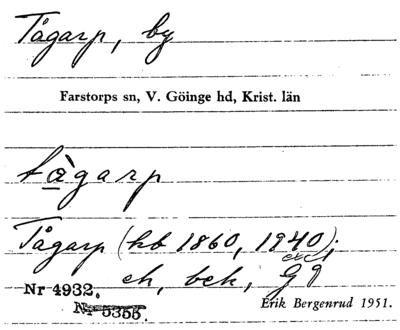 Tågarp, by
Farstorps sn, V. Göinge hd, Krist. län
tàgarp
Tågarp (hb 1860, 1940);
ek, bek, Gg
Nr 4932.
Nr 5355.
Erik Bergenrud 1951.